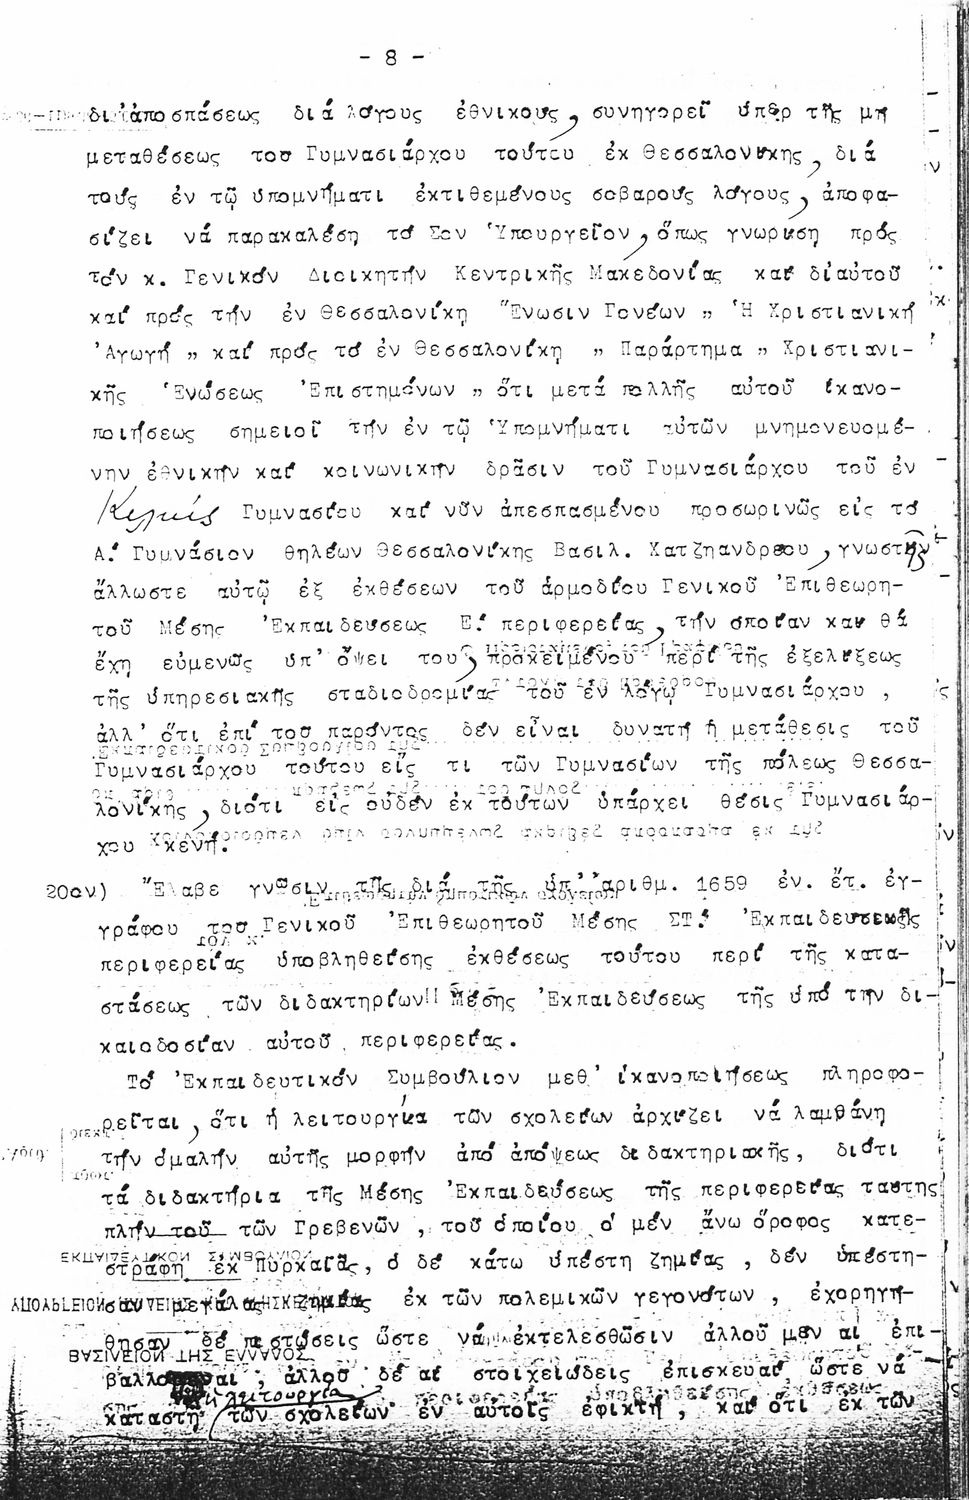 - 8 -
δι' ἀποσπάσεως διά λόγους ἐθνικούς, συνηγορεῖ ὑπέρ τῆς μή
μεταθέσεως τοῦ Γυμνασιάρχου τούτου ἐκ Θεσσαλονίκης, διά
τούς ἐν τῷ ὑπομνήματι ἐκτιθεμένους σοβαρούς λόγους, ἀποφα-
σίζει νά παρακαλέση τό Σον Ὑπουργεῖον, ὅπως γνωρίση πρός
τόν κ. Γενικόν Διοικητήν Κεντρικῆς Μακεδονίας καί δι' αὐτοῦ
καί πρός τήν ἐν Θεσσαλονίκη Ἕνωσιν Γονέων " Ἡ Χριστιανική
Ἀγωγή " καί πρός τό ἐν Θεσσαλονίκη " Παράρτημα " Χριστιανι-
κῆς Ἑνώσεως Ἐπιστημόνων " ὅτι μετά πολλῆς αὐτοῦ ἱκανο-
ποιήσεως σημειοῖ τήν ἐν τῷ Ὑπομνήματι αὐτῶν μνημονευομέ-
νην ἐθνικήν καί κοινωνικήν δρᾶσιν τοῦ Γυμνασιάρχου τοῦ ἐν
Κιλκίς Γυμνασίου καί νῦν ἀπεσπασμένου προσωρινῶς εἰς τό
Α! Γυμνάσιον θηλέων Θεσσαλονίκης Βασιλ. Χατζηανδρέου, γνωστήν
ἄλλωστε αὐτῷ ἐξ ἐκθέσεων τοῦ ἁρμοδίου Γενικοῦ Ἐπιθεωρη-
τοῦ Μέσης Ἐκπαιδεύσεως Ε! περιφερείας, τήν ὁποίαν καί θά
ἔχη εὐμενῶς ὑπ' ὄψει του, προκειμένου περί τῆς ἐξελίξεως
τῆς ὑπηρεσιακῆς σταδιοδρομίας τοῦ ἐν λόγῳ Γυμνασιάρχου ,
ἀλλ' ὅτι ἐπί τοῦ παρόντος δέν εἶναι δυνατή ἡ μετάθεσις τοῦ
Γυμνασιάρχου τούτου εἴς τι τῶν Γυμνασίων τῆς πόλεως Θεσσα-
λονίκης, διότι εἰς οὐδέν ἐκ τούτων ὑπάρχει θέσις Γυμνασιάρ-
χου κενή.
20όν) Ἔλαβε γνῶσιν τῆς διά τῆς ὑπ' ἀριθμ. 1659 ἐν. ἔτ. ἐγ-
γράφου τοῦ Γενικοῦ Ἐπιθεωρητοῦ Μέσης ΣΤ! Ἐκπαιδεύσεως
περιφερείας ὑποβληθείσης ἐκθέσεως τούτου περί τῆς κατα-
στάσεως τῶν διδακτηρίων Μέσης Ἐκπαιδεύσεως τῆς ὑπό τήν δι-
καιοδοσίαν αὐτοῦ περιφερείας.
Τό Ἐκπαιδευτικόν Συμβούλιον μεθ' ἱκανοποιήσεως πληροφο-
ρεῖται, ὅτι ἡ λειτουργία τῶν σχολείων ἀρχίζει νά λαμβάνη
τήν ὁμαλήν αὐτῆς μορφήν ἀπό ἀπόψεως διδακτηριακῆς, διότι
τά διδακτήρια τῆς Μέσης Ἐκπαιδεύσεως τῆς περιφερείας ταύτης
πλήν τοῦ τῶν Γρεβενῶν , τοῦ ὁποίου ὁ μέν ἄνω ὄροφος κατε-
στράφη ἐκ Πυρκαϊᾶς, ὁ δέ κάτω ὑπέστη ζημίας , δέν ὑπέστη-
σαν μεγάλας ζημίας ἐκ τῶν πολεμικῶν γεγονότων , ἐχορηγή-
θησαν δέ πιστώσεις ὥστε νά ἐκτελεσθῶσιν ἀλλοῦ μέν αἱ ἐπι-
βάλλουσαι , ἀλλοῦ δέ αἱ στοιχειώδεις ἐπισκευαί, ὥστε νά
ἡ λειτουργία
καταστῆ τῶν σχολείων ἐν αὐτοῖς ἐφικτή , καί ὅτι ἐκ τῶν